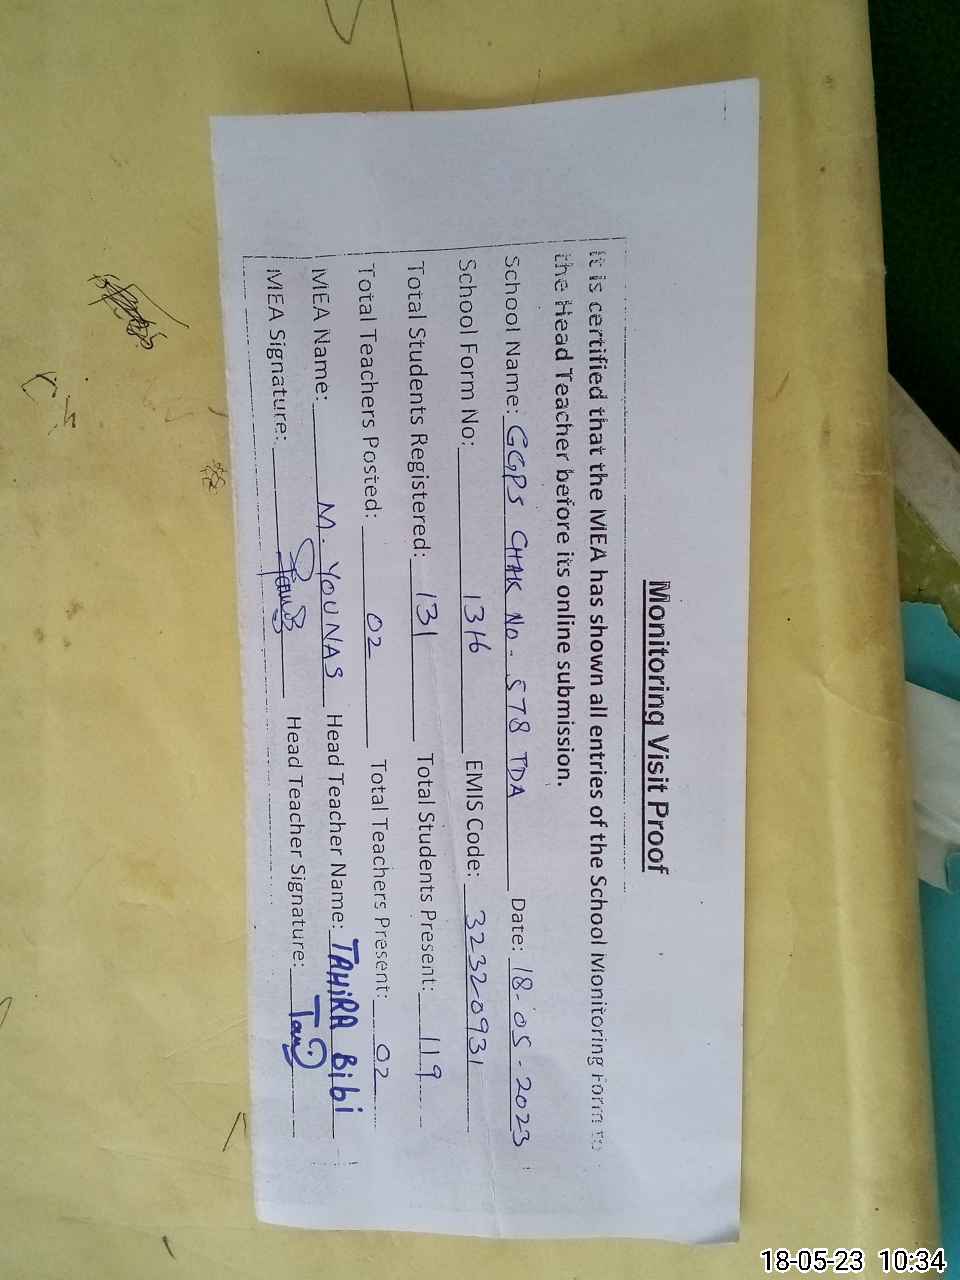 Monitoring Visit Proof
It is certified that the MEA has shown all entries of the School Monitoring Form to
the Head Teacher before its online submission.
School Name: GGPS CHAK No. 578 TDA Date: 18-05-2023
School Form No: 1316 EMIS Code: 32320931
Total Students Registered: 131 Total Students Present: 119
Total Teachers Posted: 02 Total Teachers Present: 02
MEA Name: M. YOUNAS Head Teacher Name: TAHiRA BiBi
MEA Signature: Head Teacher Signature:
18-05-23 10:34